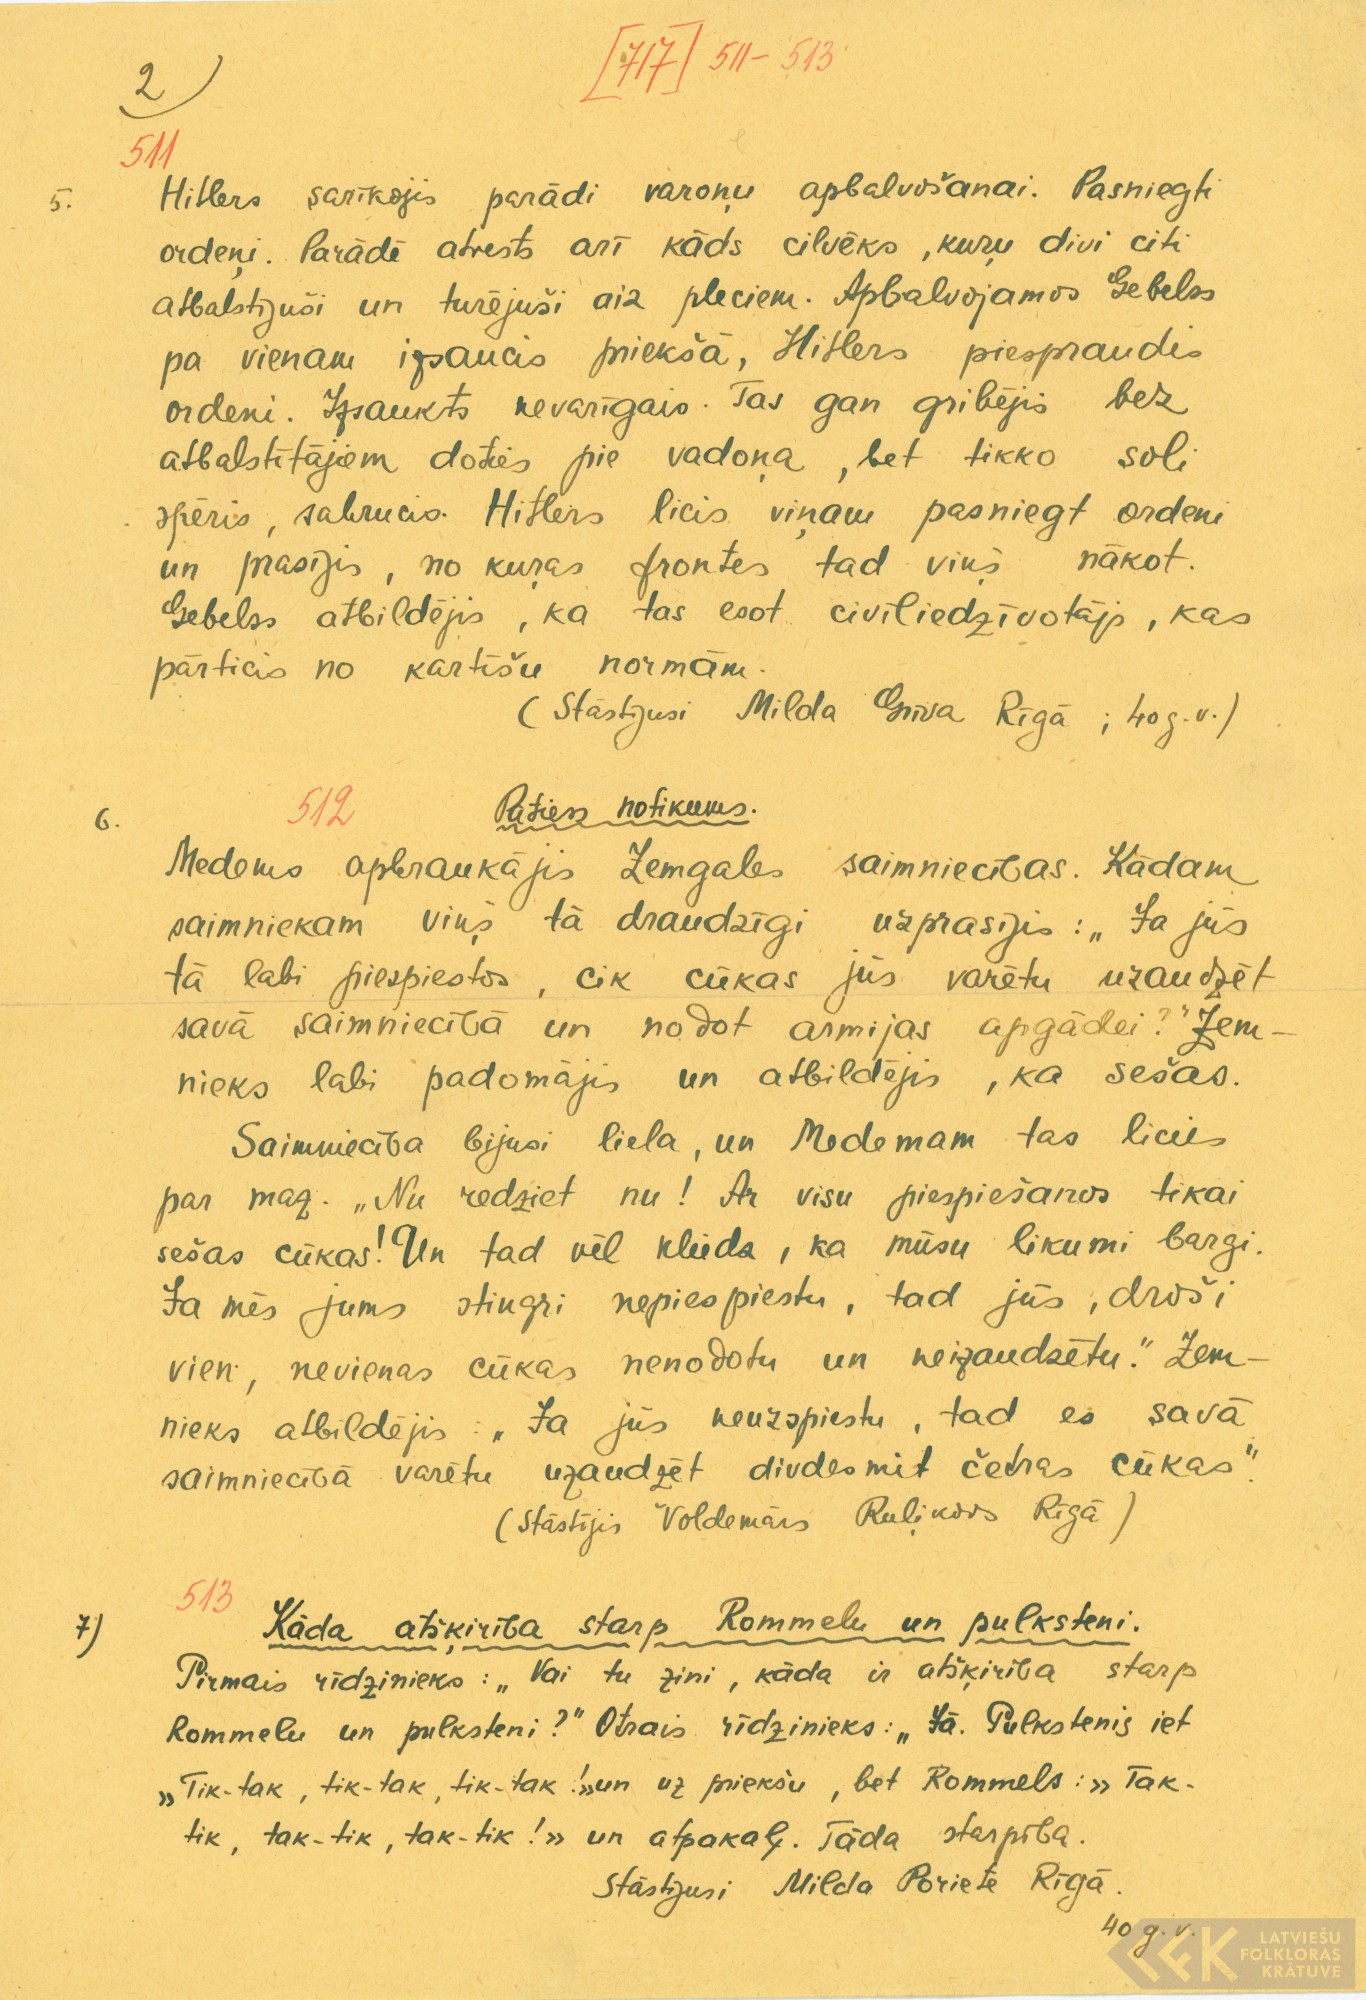 [717] 511–513
2)
511
5. Hitlers sarīkojis parādi varoņu apbalvošanai. Pasniegti
ordeņi. Parādē atvests arī kāds cilvēks, kuŗu divi citi
atbalstījuši un turējuši aiz pleciem. Apbalvojamos Gebelss
pa vienam izsaucis priekšā, Hitlers piespraudis
ordeni. Izsaukts nevarīgais. Tas gan gribējis bez
atbalstītājiem doties pie vadoņa, bet tikko soli
spēris, sabrucis. Hitlers licis viņam pasniegt ordeni
un prasījis, no kuŗas frontes tad viņš nākot.
Gebelss atbildējis, ka tas esot civīliedzīvotājs, kas
pārticis no kartīšu normām.
(Stāstījusi Milda Grīva Rīgā; 40 g. v.)
6. 512 Patiess notikums.
Medems apbraukājis Zemgales saimniecības. Kādam
saimniekam viņš tā draudzīgi uzprasījis: „Ja jūs
tā labi piespiestos, cik cūkas jūs varētu uzaudzēt
savā saimniecībā un nodot armijas apgādei?" Zem-
nieks labi padomājis un atbildējis, ka sešas.
Saimniecība bijusi liela, un Medemam tas licies
par maz. „Nu redziet nu! Ar visu piespiešanos tikai
sešas cūkas! Un tad vēl kliedz, ka mūsu likumi bargi.
Ja mēs jums stingri nepiespiestu, tad jūs, droši
vien, nevienas cūkas nenodotu un neizaudzētu." Zem-
nieks atbildējis: „Ja jūs neuzspiestu, tad es savā
saimniecībā varētu uzaudzēt divdesmit četras cūkas".
(Stāstījis Voldemārs Ruļukovs Rīgā)
513
7) Kāda atšķirība starp Rommelu un pulksteni.
Pirmais rīdzinieks: „Vai tu zini, kāda ir atšķirība starp
Rommelu un pulksteni?" Otrais rīdzinieks: „Jā. Pulkstenis iet
»Tik-tak, tik-tak, tik-tak!» un uz priekšu, bet Rommels: »Tak-
tik, tak-tik, tak-tik!» un atpakaļ. Tāda starpība.
Stāstījusi Milda Poriete Rīgā.
40 g. v.
LATVIEŠU
FOLKLORAS
KRĀTUVE